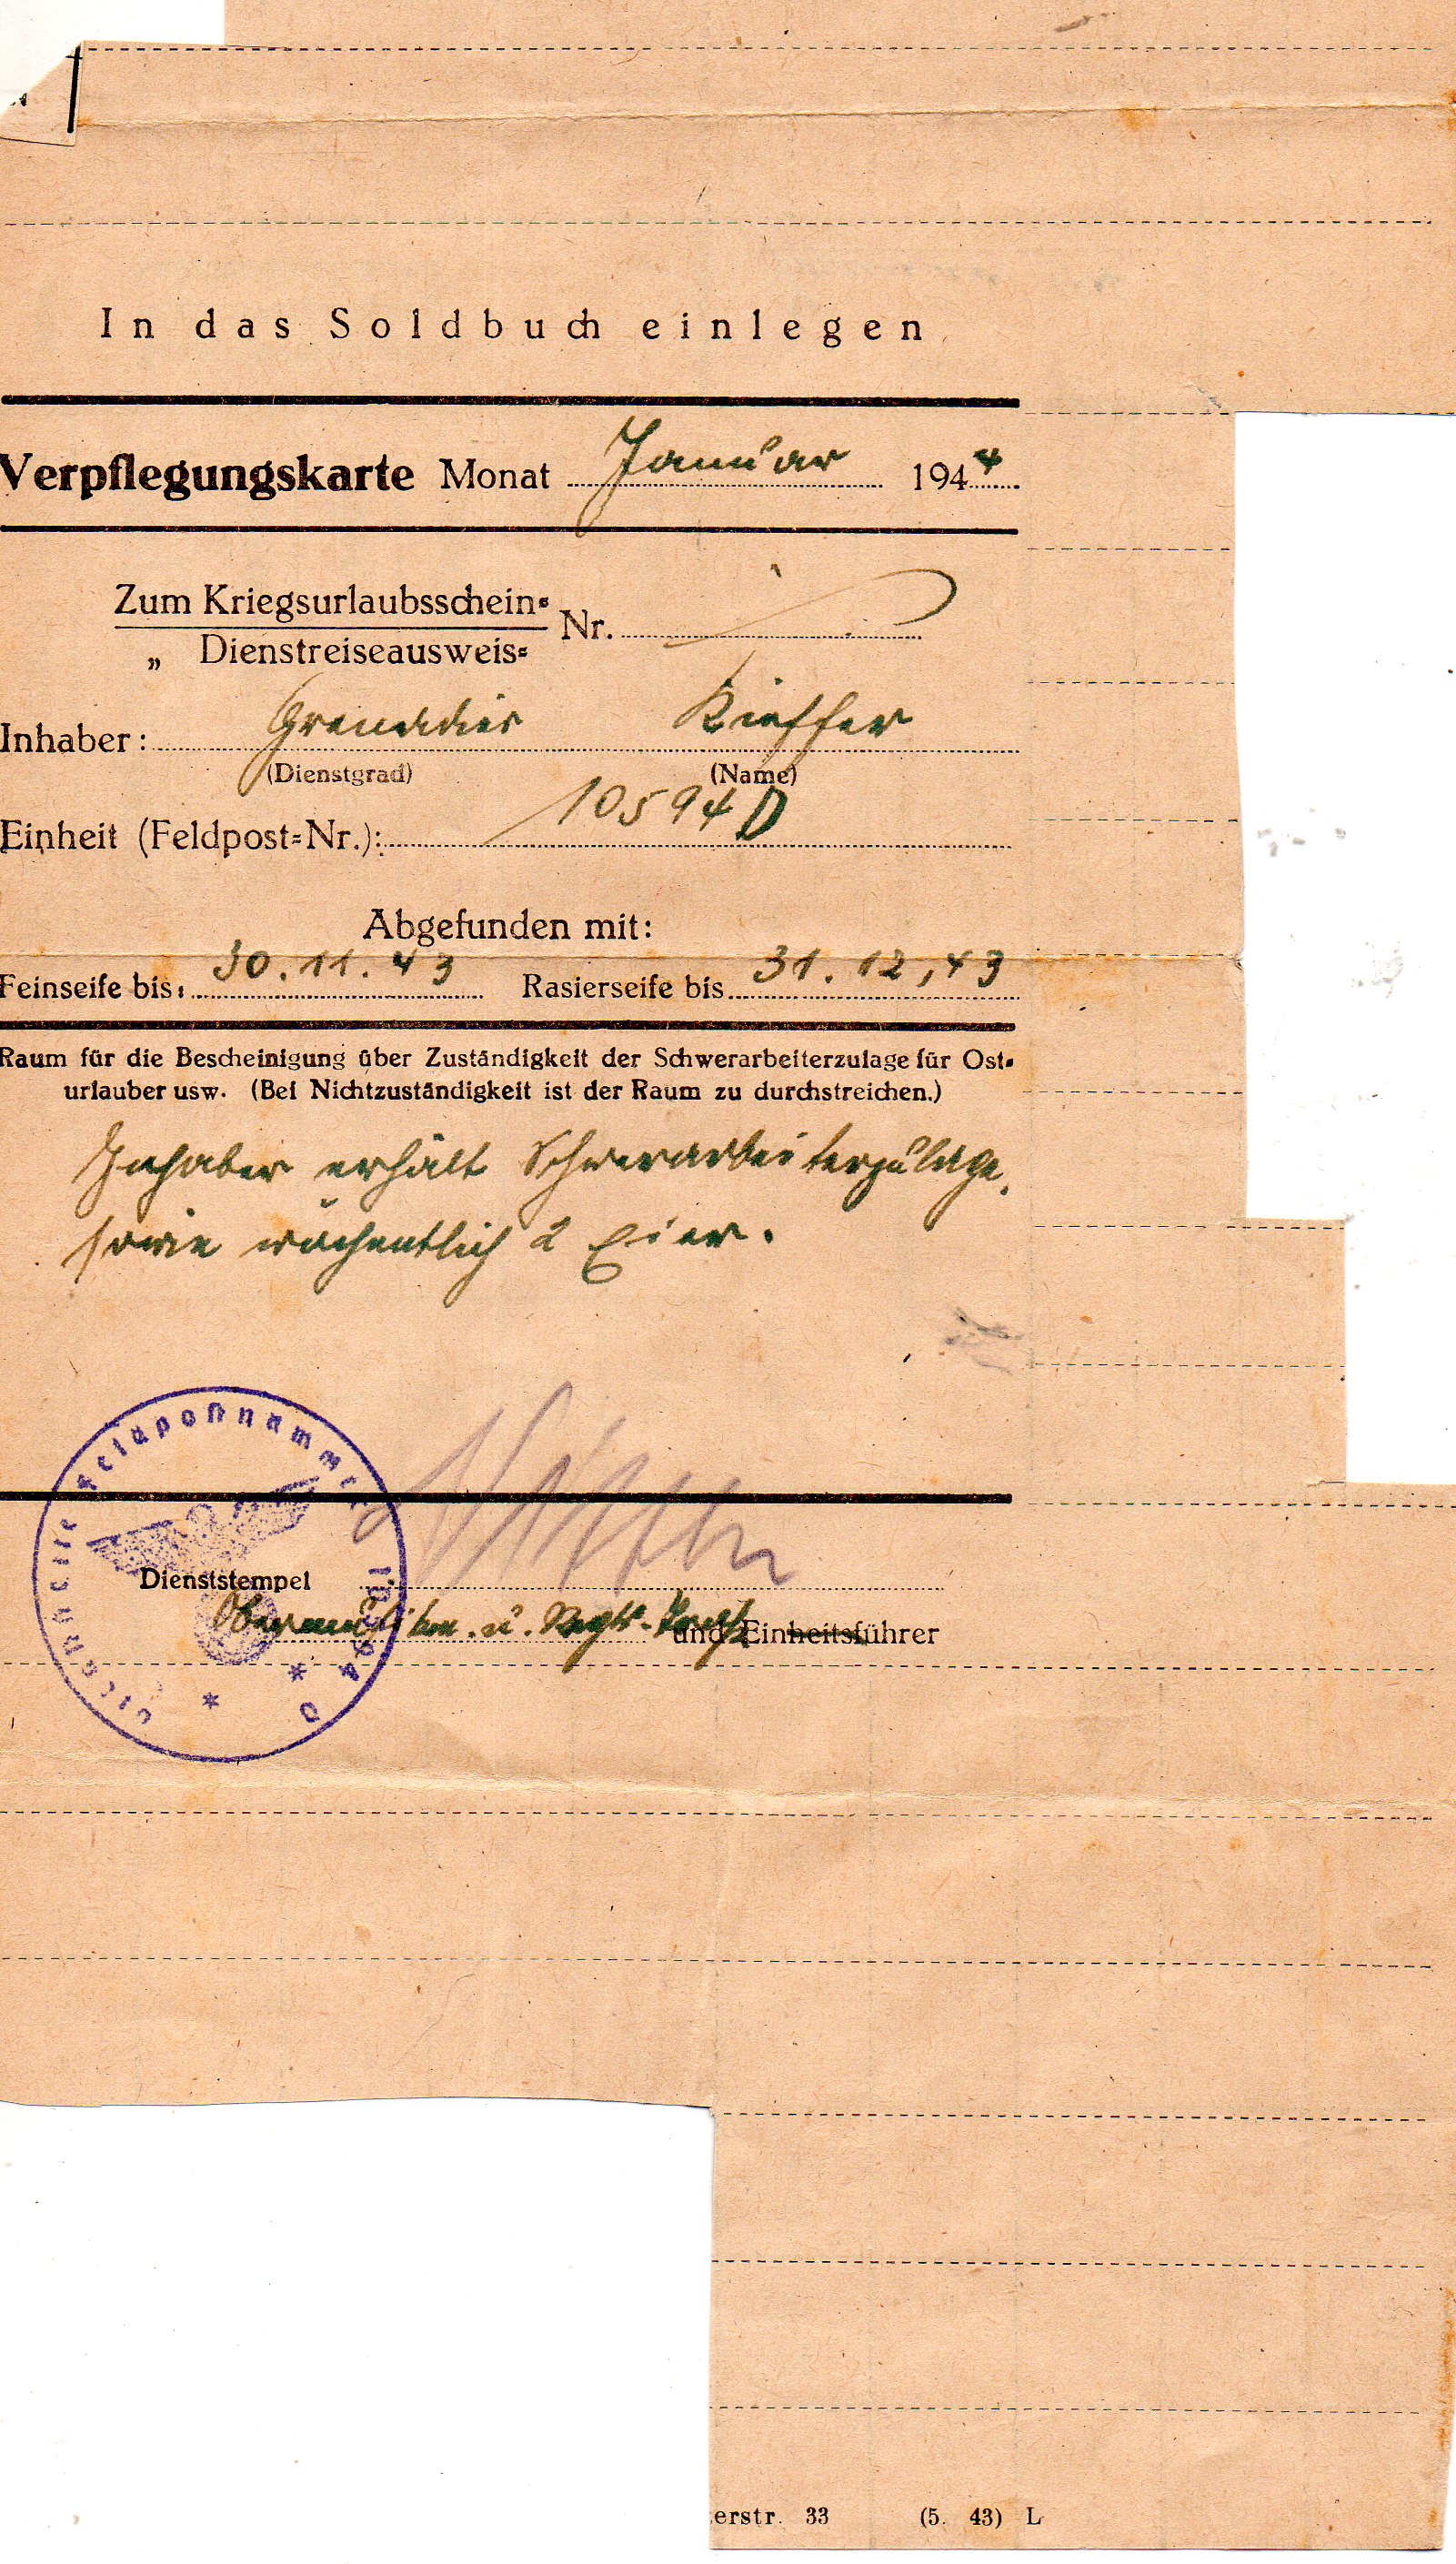 In das Soldbuch einlegen
Verpflegungskarte Monat Januar 1944
Zum Kriegsurlaubsschein= Nr.
„ Dienstreiseausweis=
Inhaber: Grenadier Kieffer
(Dienstgrad) (Name)
Einheit (Feldpost=Nr.): 10594 D
Abgefunden mit:
Feinseife bis: 30.11.43 Rasierseife bis 31.12.43
Raum für die Bescheinigung über Zuständigkeit der Schwerarbeiterzulage für Ost=
urlauber usw. (Bei Nichtzuständigkeit ist der Raum zu durchstreichen.)
Inhaber erhält Schwerarbeiterzulage,
sowie wöchentlich 2 Eier.
Dienststelle Feldpostnummer 10594 D
Dienststempel
Obermusikm. u. Regts- und Einheitsführer
erstr. 33 (5. 43) L